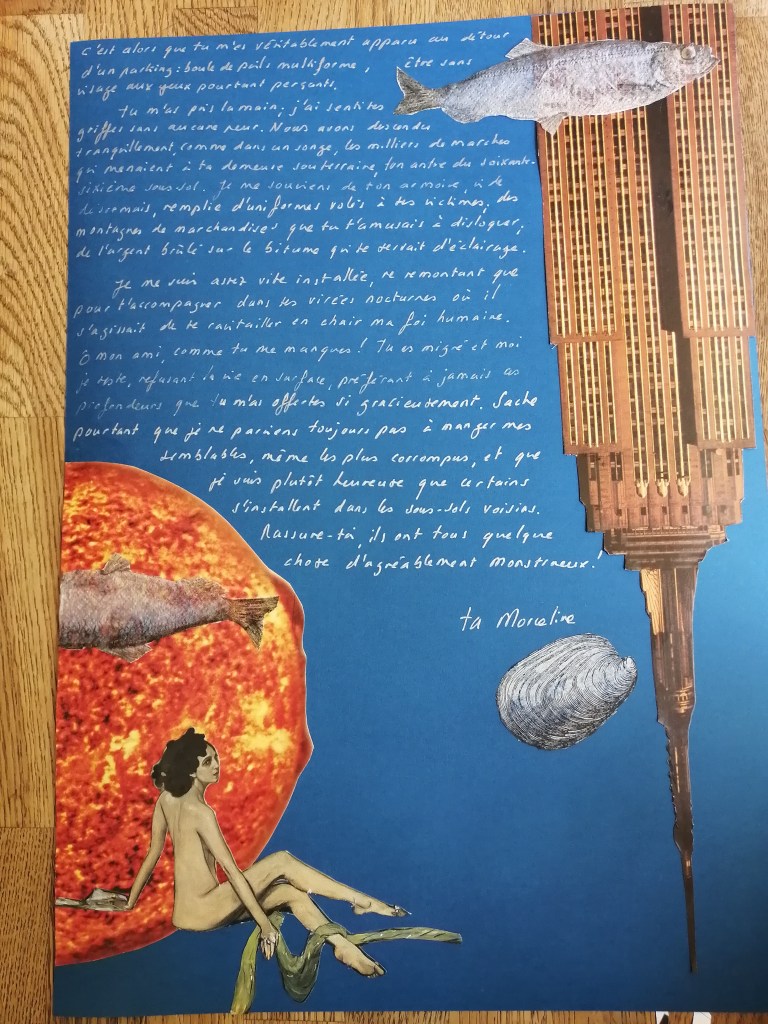 c'est alors que tu m'es véritablement apparu au détour
d'un parking : boule de poils multiforme, être sans
visage aux yeux pourtant perçants.
Tu m'as pris la main ; j'ai senti tes
griffes sans aucune peur. Nous avons descendu
tranquillement, comme dans un songe, les milliers de marches
qui menaient à ta demeure souterraine, ton antre du soixante-
sixième sous-sol. Je me souviens de ton armoire, vide
désormais, remplie d'uniformes volés à tes victimes, des
montagnes de marchandises que tu t'amusais à disloquer,
de l'argent brûlé sur le bitume qui te servait d'éclairage.
Je me suis assez vite installée, ne remontant que
pour t'accompagner dans tes virées nocturnes où il
s'agissait de te ravitailler en chair ma foi humaine.
Ô mon ami, comme tu me manques ! Tu as migré et moi
je reste, refusant la vie en surface, préférant à jamais ces
profondeurs que tu m'as offertes si gracieusement. Sache
pourtant que je ne parviens toujours pas à manger mes
semblables, même les plus corrompus, et que
je suis plutôt heureuse que certains
s'installent dans les sous-sols voisins.
Rassure-toi, ils ont tous quelque
chose d'agréablement monstrueux !
ta Marceline